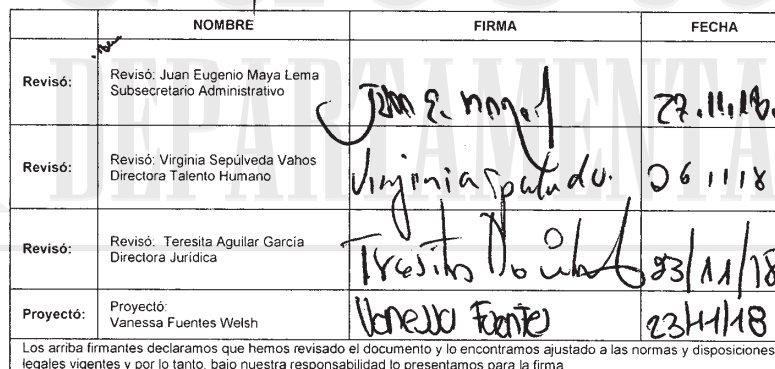 NOMBRE FIRMA FECHA
Revisó: Revisó: Juan Eugenio Maya Lema
Subsecretario Administrativo
27.11.18.
Revisó: Revisó: Virginia Sepúlveda Vahos
Directora Talento Humano
Virginia 26 11 18
Revisó: Revisó: Teresita Aguilar García
Directora Jurídica
Teresita 23/11/18
Proyectó: Proyectó:
Vanessa Fuentes Welsh
Vanessa Fuentes 23/11/18
Los arriba firmantes declaramos que hemos revisado el documento y lo encontramos ajustado a las normas y disposiciones
legales vigentes y por lo tanto, bajo nuestra responsabilidad lo presentamos para la firma
DEPARTAMENTA